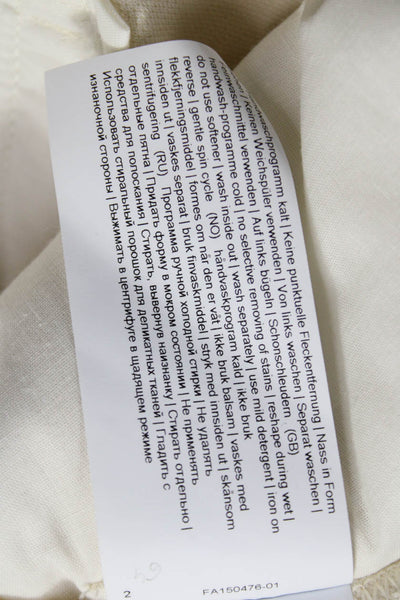 kalt | Keine punktuelle Fleckentfernung | Nass in Form
| Keinen Weichspüler verwenden | Von links waschen | Separat waschen |
Feinwaschmittel verwenden | Auf links bügeln | Schonschleudern (GB)
handwash-programme cold | no selective removing of stains | reshape during wet |
do not use softener | wash inside out | wash separately | use mild detergent | iron on
reverse | gentle spin cycle (NO) håndvaskprogram kald | ikke bruk
flekkfjerningsmiddel | formes om når den er våt | ikke bruk balsam | vaskes med
innsiden ut | vaskes separat | bruk finvaskmiddel | stryk med innsiden ut | skånsom
sentrifugering (RU) Программа ручной холодной стирки | Не удалять
отдельные пятна | Придать форму в мокром состоянии | Не применять
средства для полоскания | Стирать, вывернув наизнанку | Стирать отдельно |
Использовать стиральный порошок для деликатных тканей | Гладить с
изнаночной стороны | Выжимать в центрифуге в щадящем режиме
2 FA150476-01